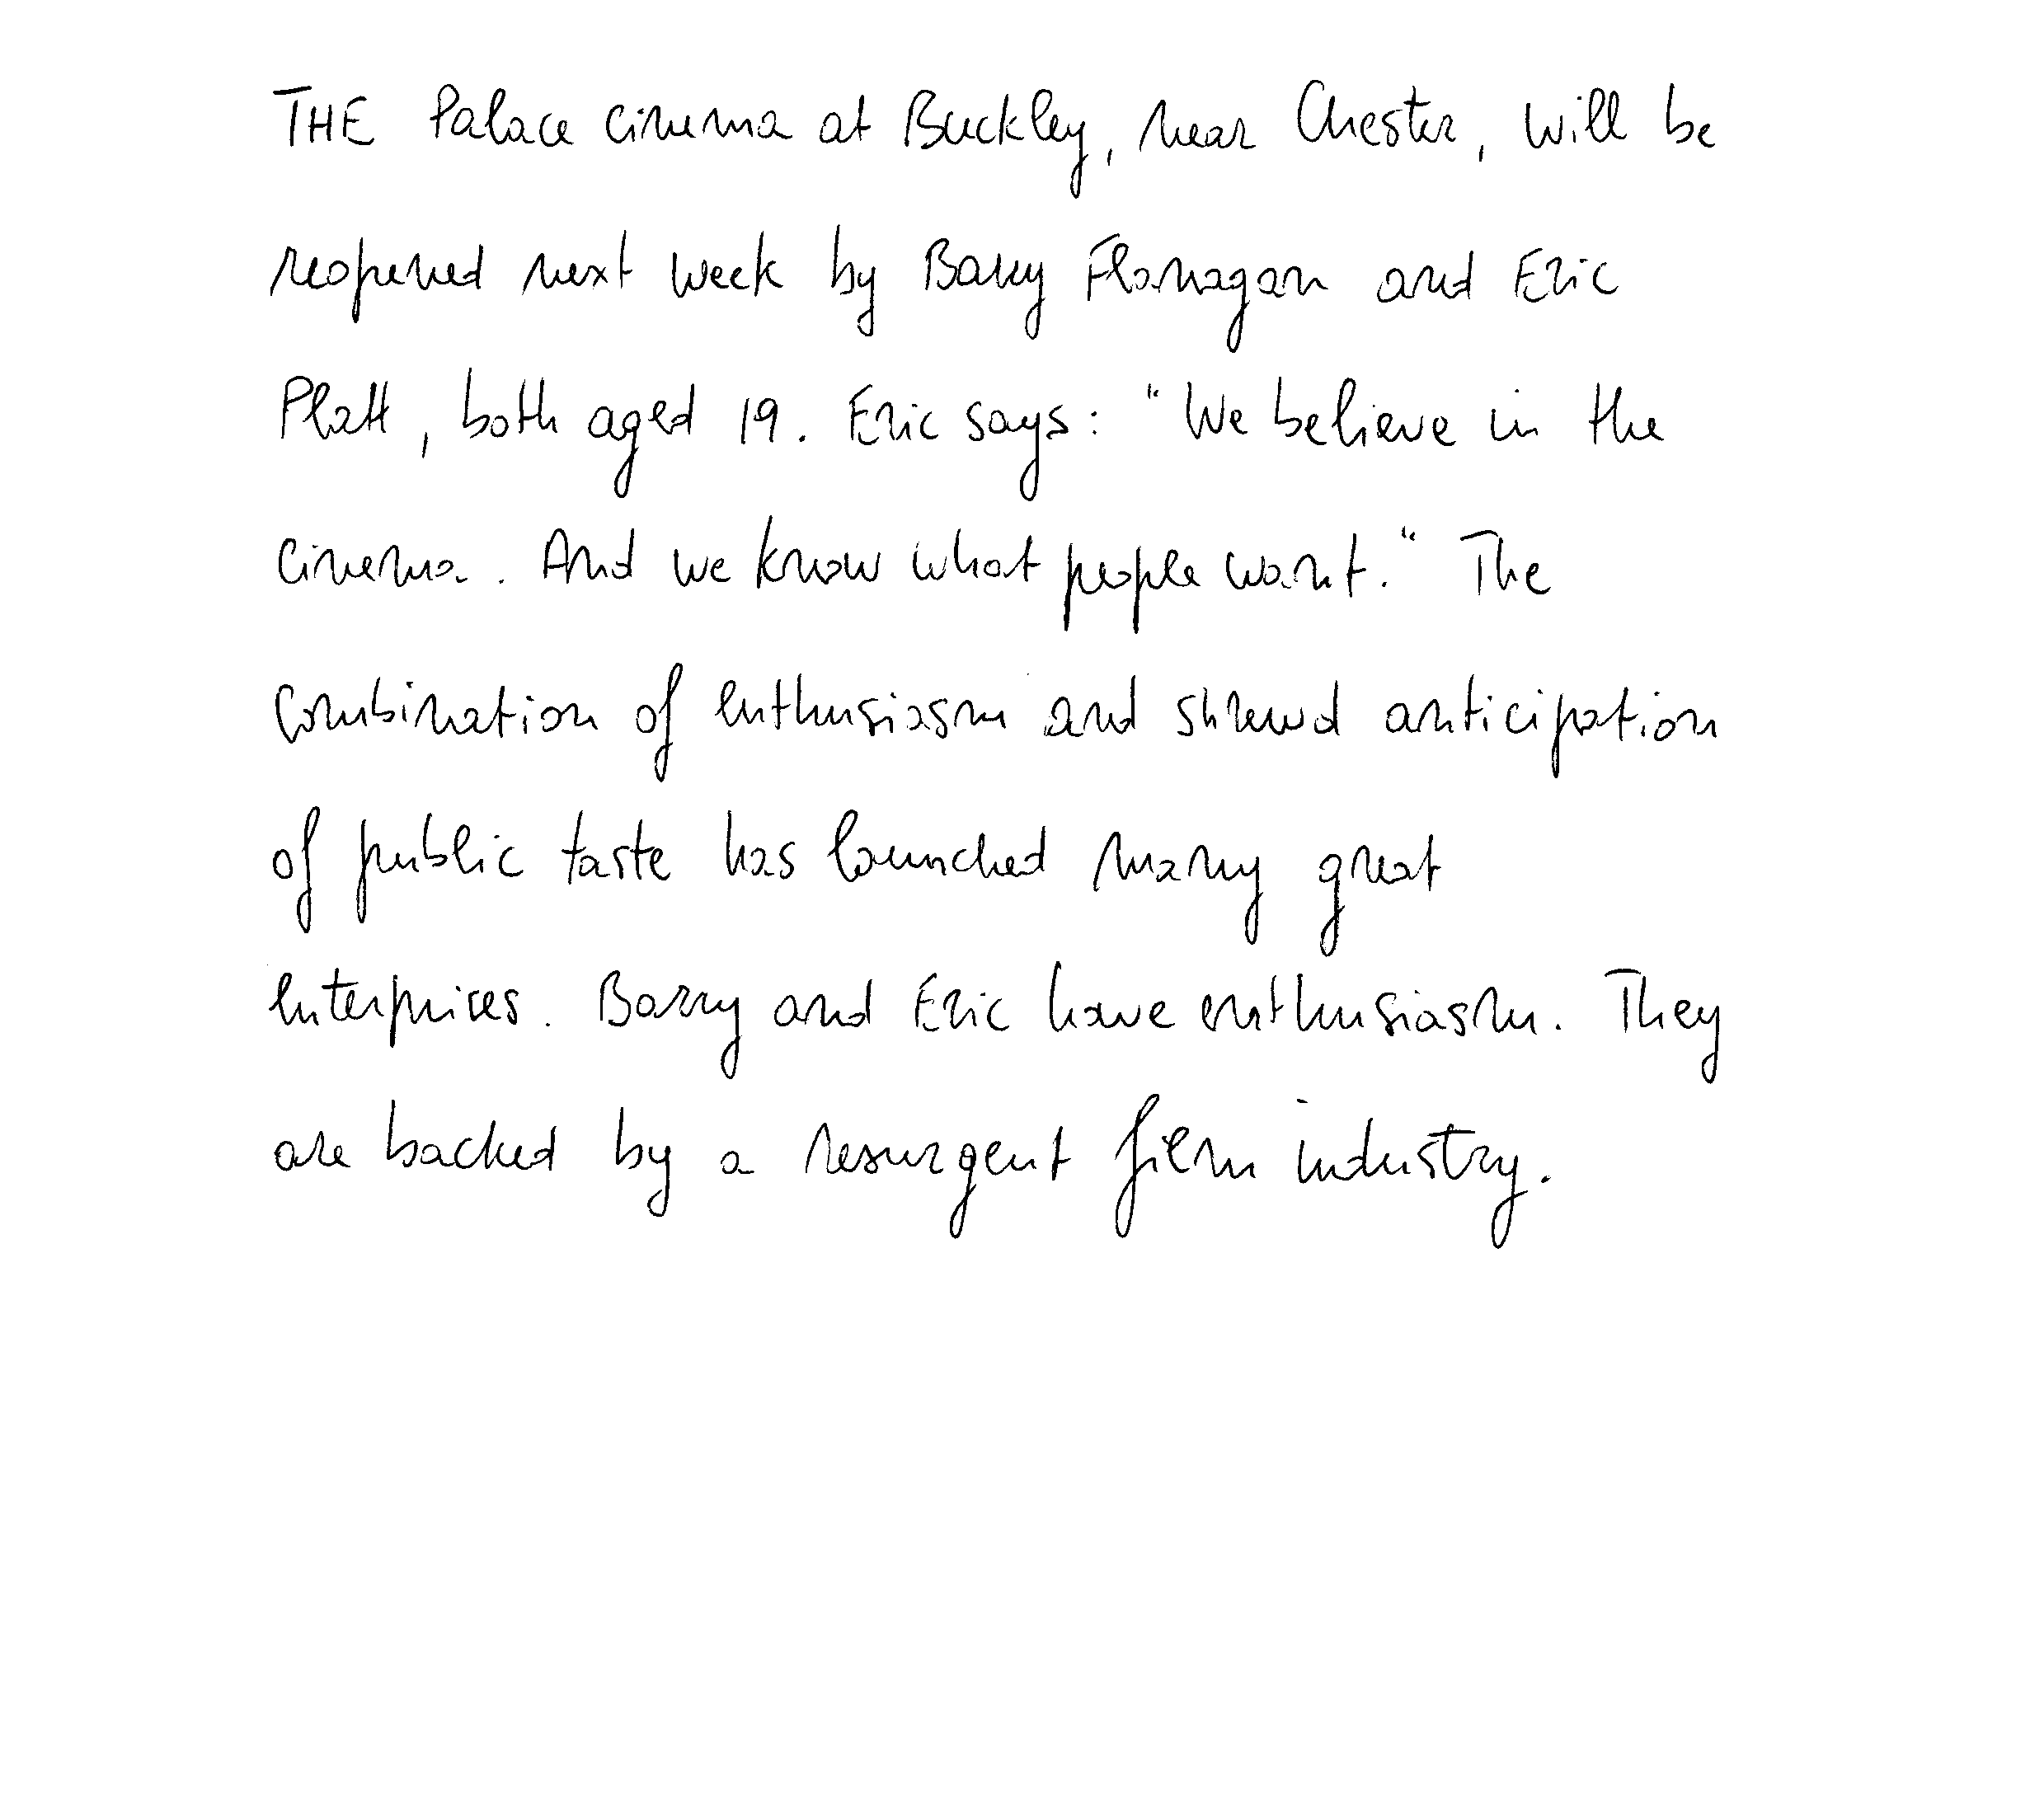 THE Palace cinema at Buckley, near Chester, will be
reopened next week by Barry Flanagan and Eric
Platt, both aged 19. Eric says: "We believe in the
cinema. And we know what people want." The
combination of enthusiasm and shrewd anticipation
of public taste has launched many great
enterprises. Barry and Eric have enthusiasm. They
are backed by a resurgent film industry.